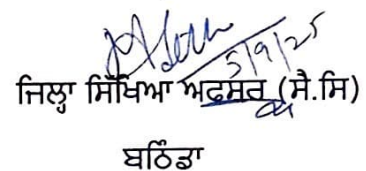 5/9/25
ਜਿਲ੍ਹਾ ਸਿੱਖਿਆ ਅਫਸਰ (ਸੈ.ਸਿ)
ਬਠਿੰਡਾ